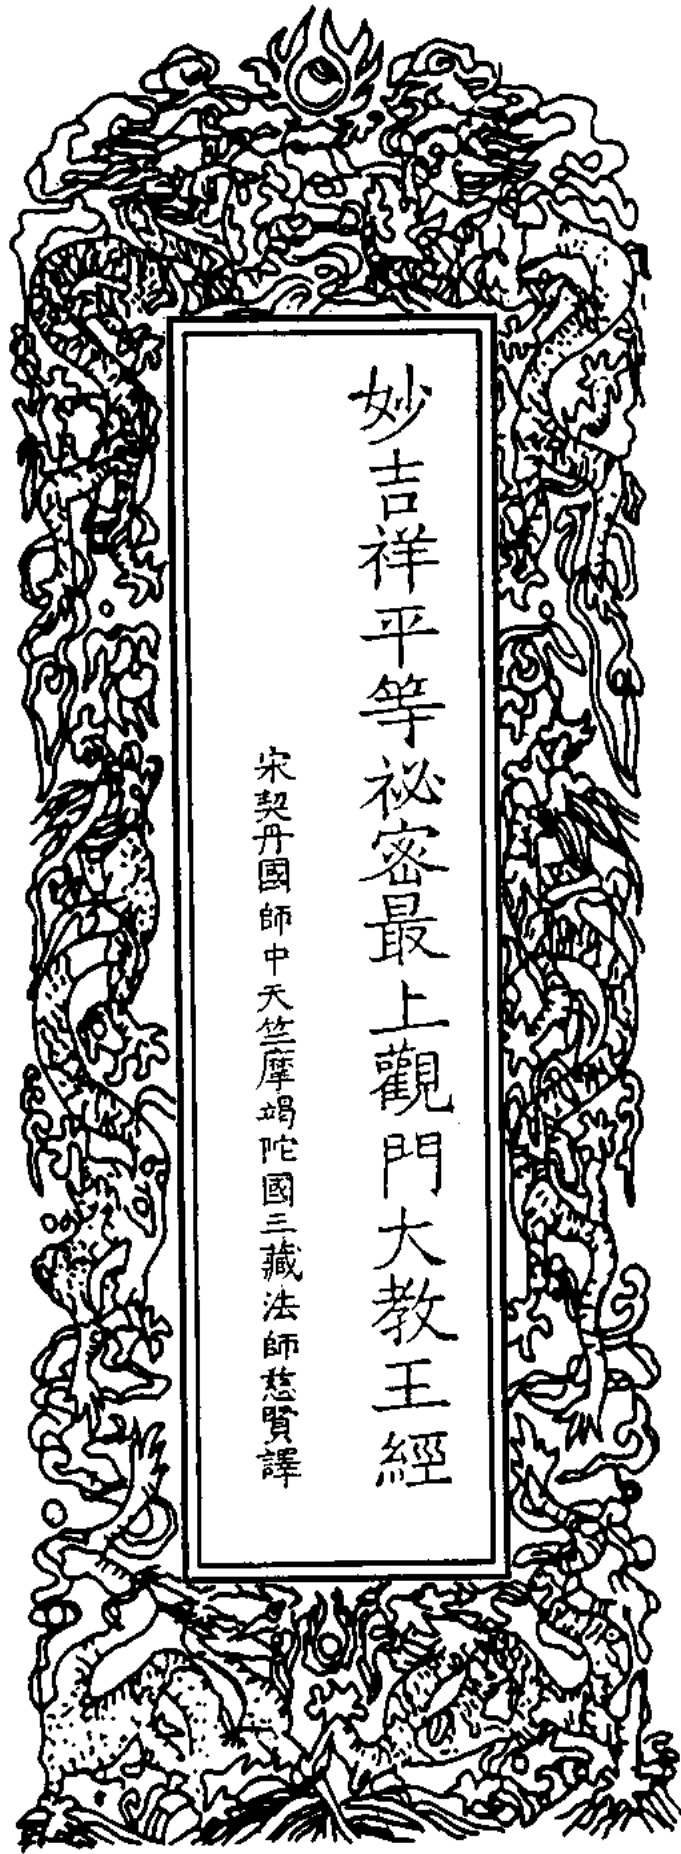 妙吉祥平等祕密最上觀門大教王經
宋契丹國師中天竺摩竭陀國三藏法師慈賢譯